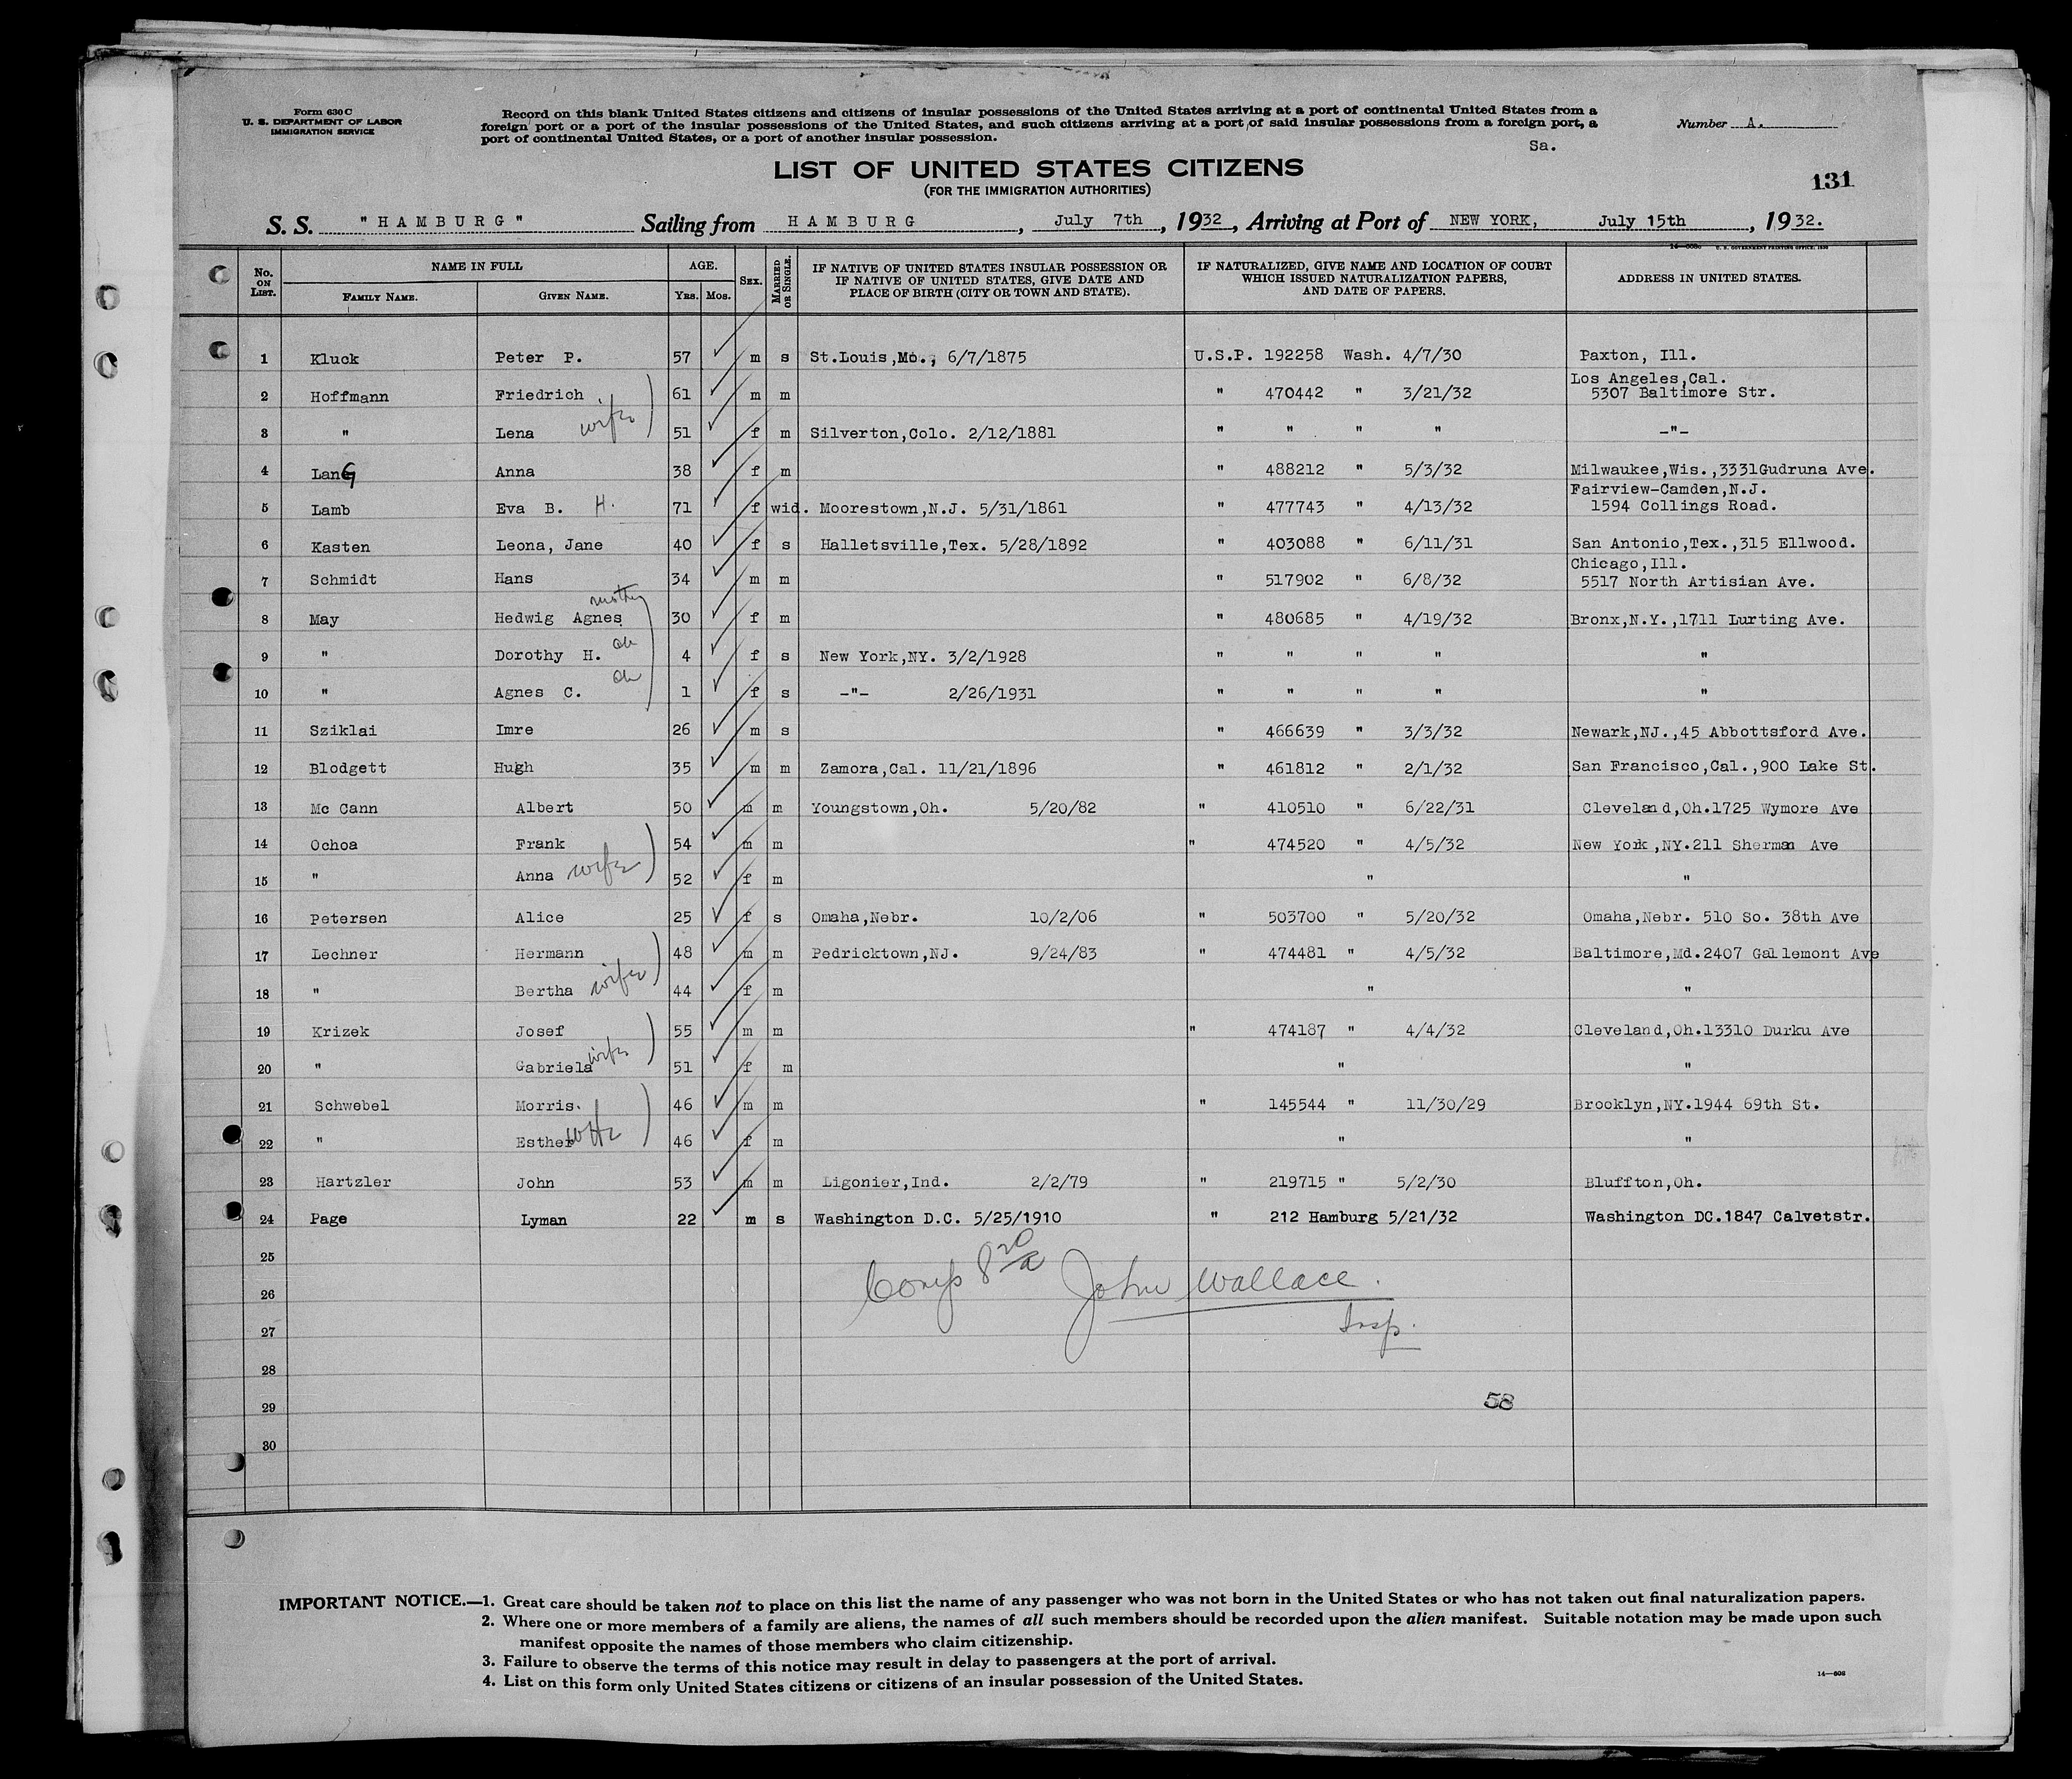 Form 630 C
U. S. DEPARTMENT OF LABOR
IMMIGRATION SERVICE
Record on this blank United States citizens and citizens of insular possessions of the United States arriving at a port of continental United States from a
foreign port or a port of the insular possessions of the United States, and such citizens arriving at a port of said insular possessions from a foreign port, a
port of continental United States, or a port of another insular possession.
Number A.
Sa.
LIST OF UNITED STATES CITIZENS
(FOR THE IMMIGRATION AUTHORITIES)
131
S. S. "HAMBURG" Sailing from HAMBURG, July 7th, 1932, Arriving at Port of NEW YORK, July 15th, 1932.
No. ON LIST. NAME IN FULL FAMILY NAME. GIVEN NAME. AGE. YRS. MOS. SEX. MARRIED OR SINGLE. IF NATIVE OF UNITED STATES INSULAR POSSESSION OR IF NATIVE OF UNITED STATES, GIVE DATE AND PLACE OF BIRTH (CITY OR TOWN AND STATE). IF NATURALIZED, GIVE NAME AND LOCATION OF COURT WHICH ISSUED NATURALIZATION PAPERS, AND DATE OF PAPERS. ADDRESS IN UNITED STATES.
1 Kluck Peter P. 57 m s St.Louis,Mo., 6/7/1875 U.S.P. 192258 Wash. 4/7/30 Paxton, Ill.
2 Hoffmann Friedrich 61 m m " 470442 " 3/21/32 Los Angeles,Cal. 5307 Baltimore Str.
3 " Lena wife 51 f m Silverton,Colo. 2/12/1881 " " " " -"-
4 LanG Anna 38 f m " 488212 " 5/3/32 Milwaukee,Wis.,3331Gudruna Ave.
5 Lamb Eva B. H. 71 f wid. Moorestown,N.J. 5/31/1861 " 477743 " 4/13/32 Fairview-Camden,N.J. 1594 Collings Road.
6 Kasten Leona, Jane 40 f s Halletsville,Tex. 5/28/1892 " 403088 " 6/11/31 San Antonio,Tex.,315 Ellwood.
7 Schmidt Hans 34 m m " 517902 " 6/8/32 Chicago,Ill. 5517 North Artisian Ave.
8 May Hedwig Agnes mother 30 f m " 480685 " 4/19/32 Bronx,N.Y.,1711 Lurting Ave.
9 " Dorothy H. ch 4 f s New York,NY. 3/2/1928 " " " " "
10 " Agnes C. ch 1 f s -"- 2/26/1931 " " " " "
11 Sziklai Imre 26 m s " 466639 " 3/3/32 Newark,NJ.,45 Abbottsford Ave.
12 Blodgett Hugh 35 m m Zamora,Cal. 11/21/1896 " 461812 " 2/1/32 San Francisco,Cal.,900 Lake St.
13 Mc Cann Albert 50 m m Youngstown,Oh. 5/20/82 " 410510 " 6/22/31 Cleveland,Oh.1725 Wymore Ave
14 Ochoa Frank 54 m m " 474520 " 4/5/32 New York,NY.211 Sherman Ave
15 " Anna wife 52 f m " "
16 Petersen Alice 25 f s Omaha,Nebr. 10/2/06 " 503700 " 5/20/32 Omaha,Nebr. 510 So. 38th Ave
17 Lechner Hermann 48 m m Pedricktown,NJ. 9/24/83 " 474481 " 4/5/32 Baltimore,Md.2407 Gallemont Ave
18 " Bertha wife 44 f m " "
19 Krizek Josef 55 m m " 474187 " 4/4/32 Cleveland,Oh.13310 Durku Ave
20 " Gabriela wife 51 f m " "
21 Schwebel Morris. 46 m m " 145544 " 11/30/29 Brooklyn,NY.1944 69th St.
22 " Esther wife 46 f m " "
23 Hartzler John 53 m m Ligonier,Ind. 2/2/79 " 219715 " 5/2/30 Bluffton,Oh.
24 Page Lyman 22 m s Washington D.C. 5/25/1910 " 212 Hamburg 5/21/32 Washington DC.1847 Calvetstr.
25
26 John Wallace.
27 Insp.
28
29 58
30
IMPORTANT NOTICE.—1. Great care should be taken not to place on this list the name of any passenger who was not born in the United States or who has not taken out final naturalization papers.
2. Where one or more members of a family are aliens, the names of all such members should be recorded upon the alien manifest. Suitable notation may be made upon such
manifest opposite the names of those members who claim citizenship.
3. Failure to observe the terms of this notice may result in delay to passengers at the port of arrival.
4. List on this form only United States citizens or citizens of an insular possession of the United States.
14—608